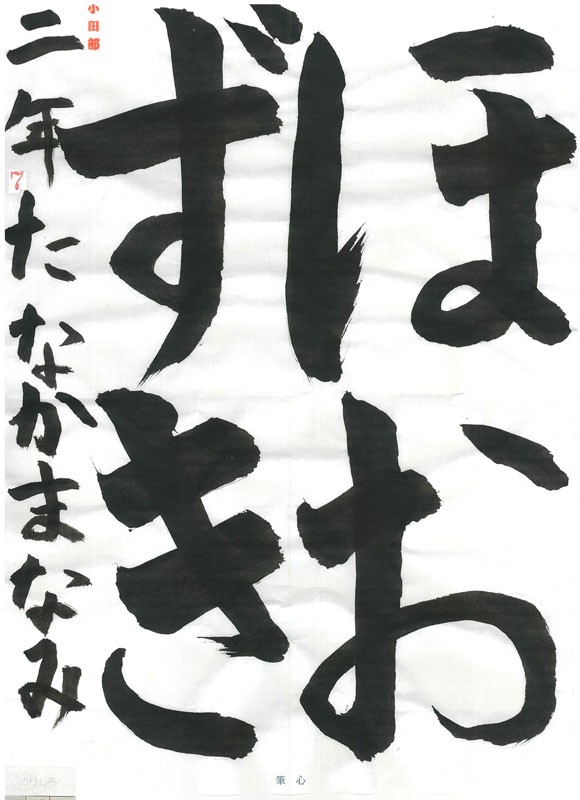 ほお
ずき
小田部
二年 たなかまなみ
7
筆 心